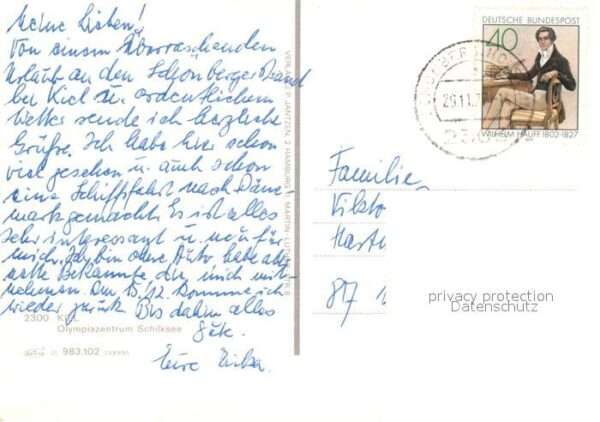 Meine Lieben!
Von einem Überraschenden
Urlaub an den Schönberger Strand
bei Kiel u. ordentlichem
Wetter sende ich herzliche
Grüße. Ich habe hier schon
viel gesehen u. auch schon
eine Schiffsfahrt nach Däne
mark gemacht. Es ist alles
sehr interessant u. neu für
mich. Ich bin ohne Auto habe aber
nette Bekannte die mich mit
nehmen. Am 15./12. komme ich
wieder zurück. Bis dahin alles
Gute.
Eure
2300 KIEL
Olympiazentrum Schilksee
983.102
DEUTSCHE BUNDESPOST
40
WILHELM HAUFF 1802-1827
29.11.
Familie
Vikto
privacy protection
Datenschutz